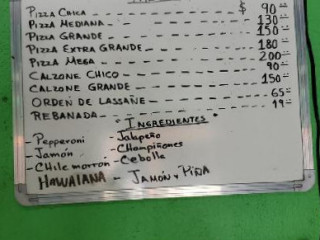 PIZZA CHICA $ 90
PIZZA MEDIANA 130
PIZZA GRANDE 150
PIZZA EXTRA GRANDE 180
PIZZA MEGA 200
CALZONE CHICO 90
CALZONE GRANDE 150
ORDEN DE LASSAÑE 65
REBANADA 19
" INGREDIENTES "
- Pepperoni - Jalapeño
- Jamón - CHampiñones
- CHile morron - Cebolla
HAWAIANA - JAMÓN Y PIÑA